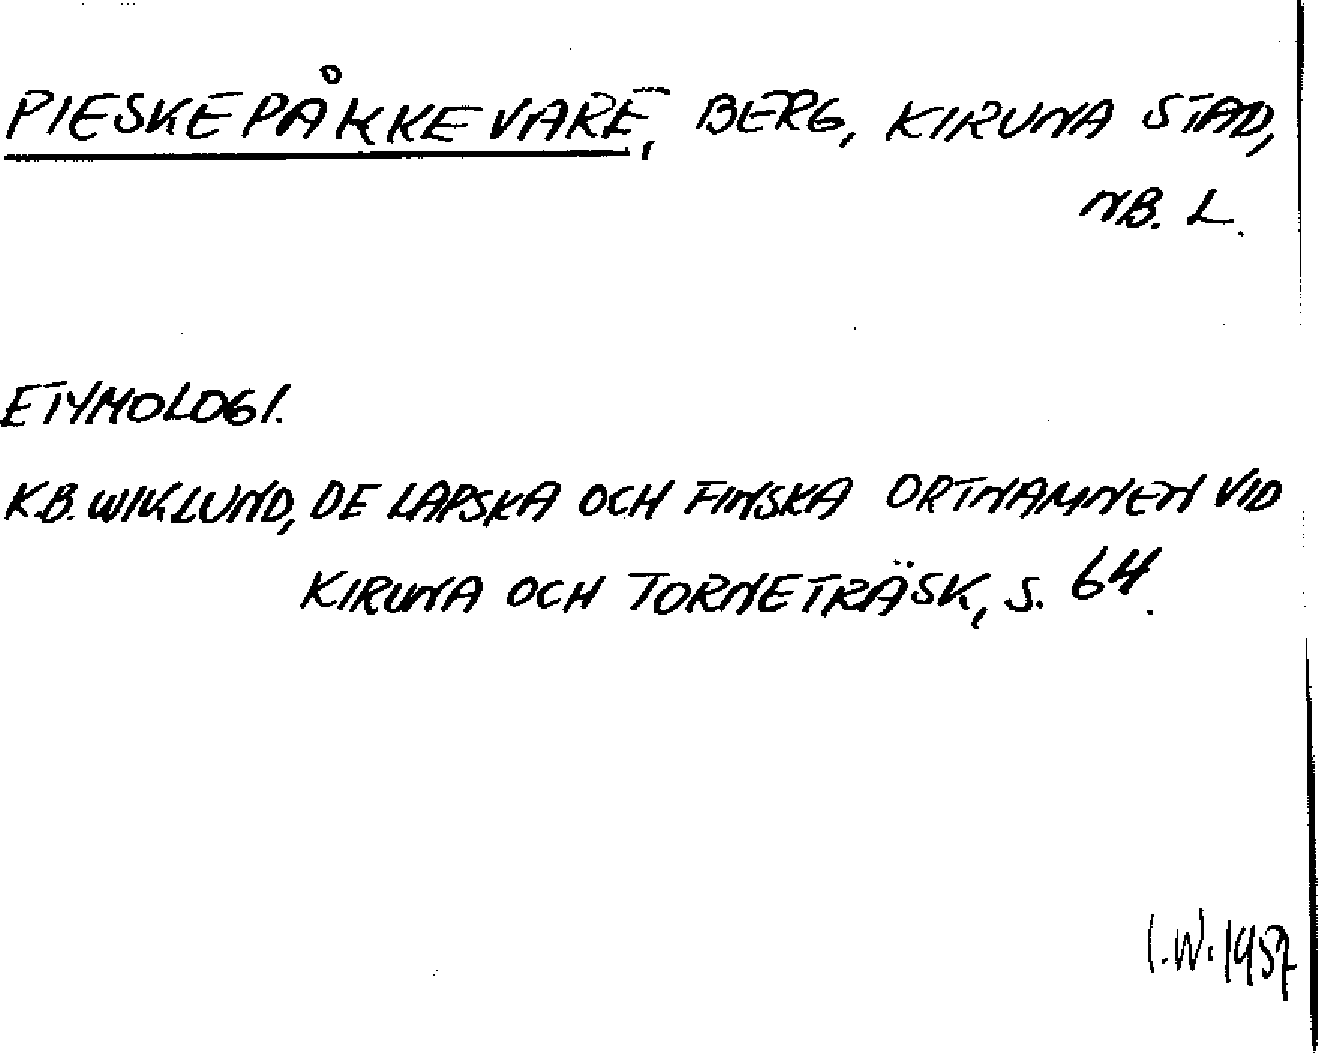 PIESKEPÅKKEVARE, BERG, KIRUNA STAD,
NB. L.
ETYMOLOGI.
K.B. WIKLUND, DE LAPSKA OCH FINSKA ORTNAMNEN VID
KIRUNA OCH TORNETRÄSK, S. 64.
I.W. 1957